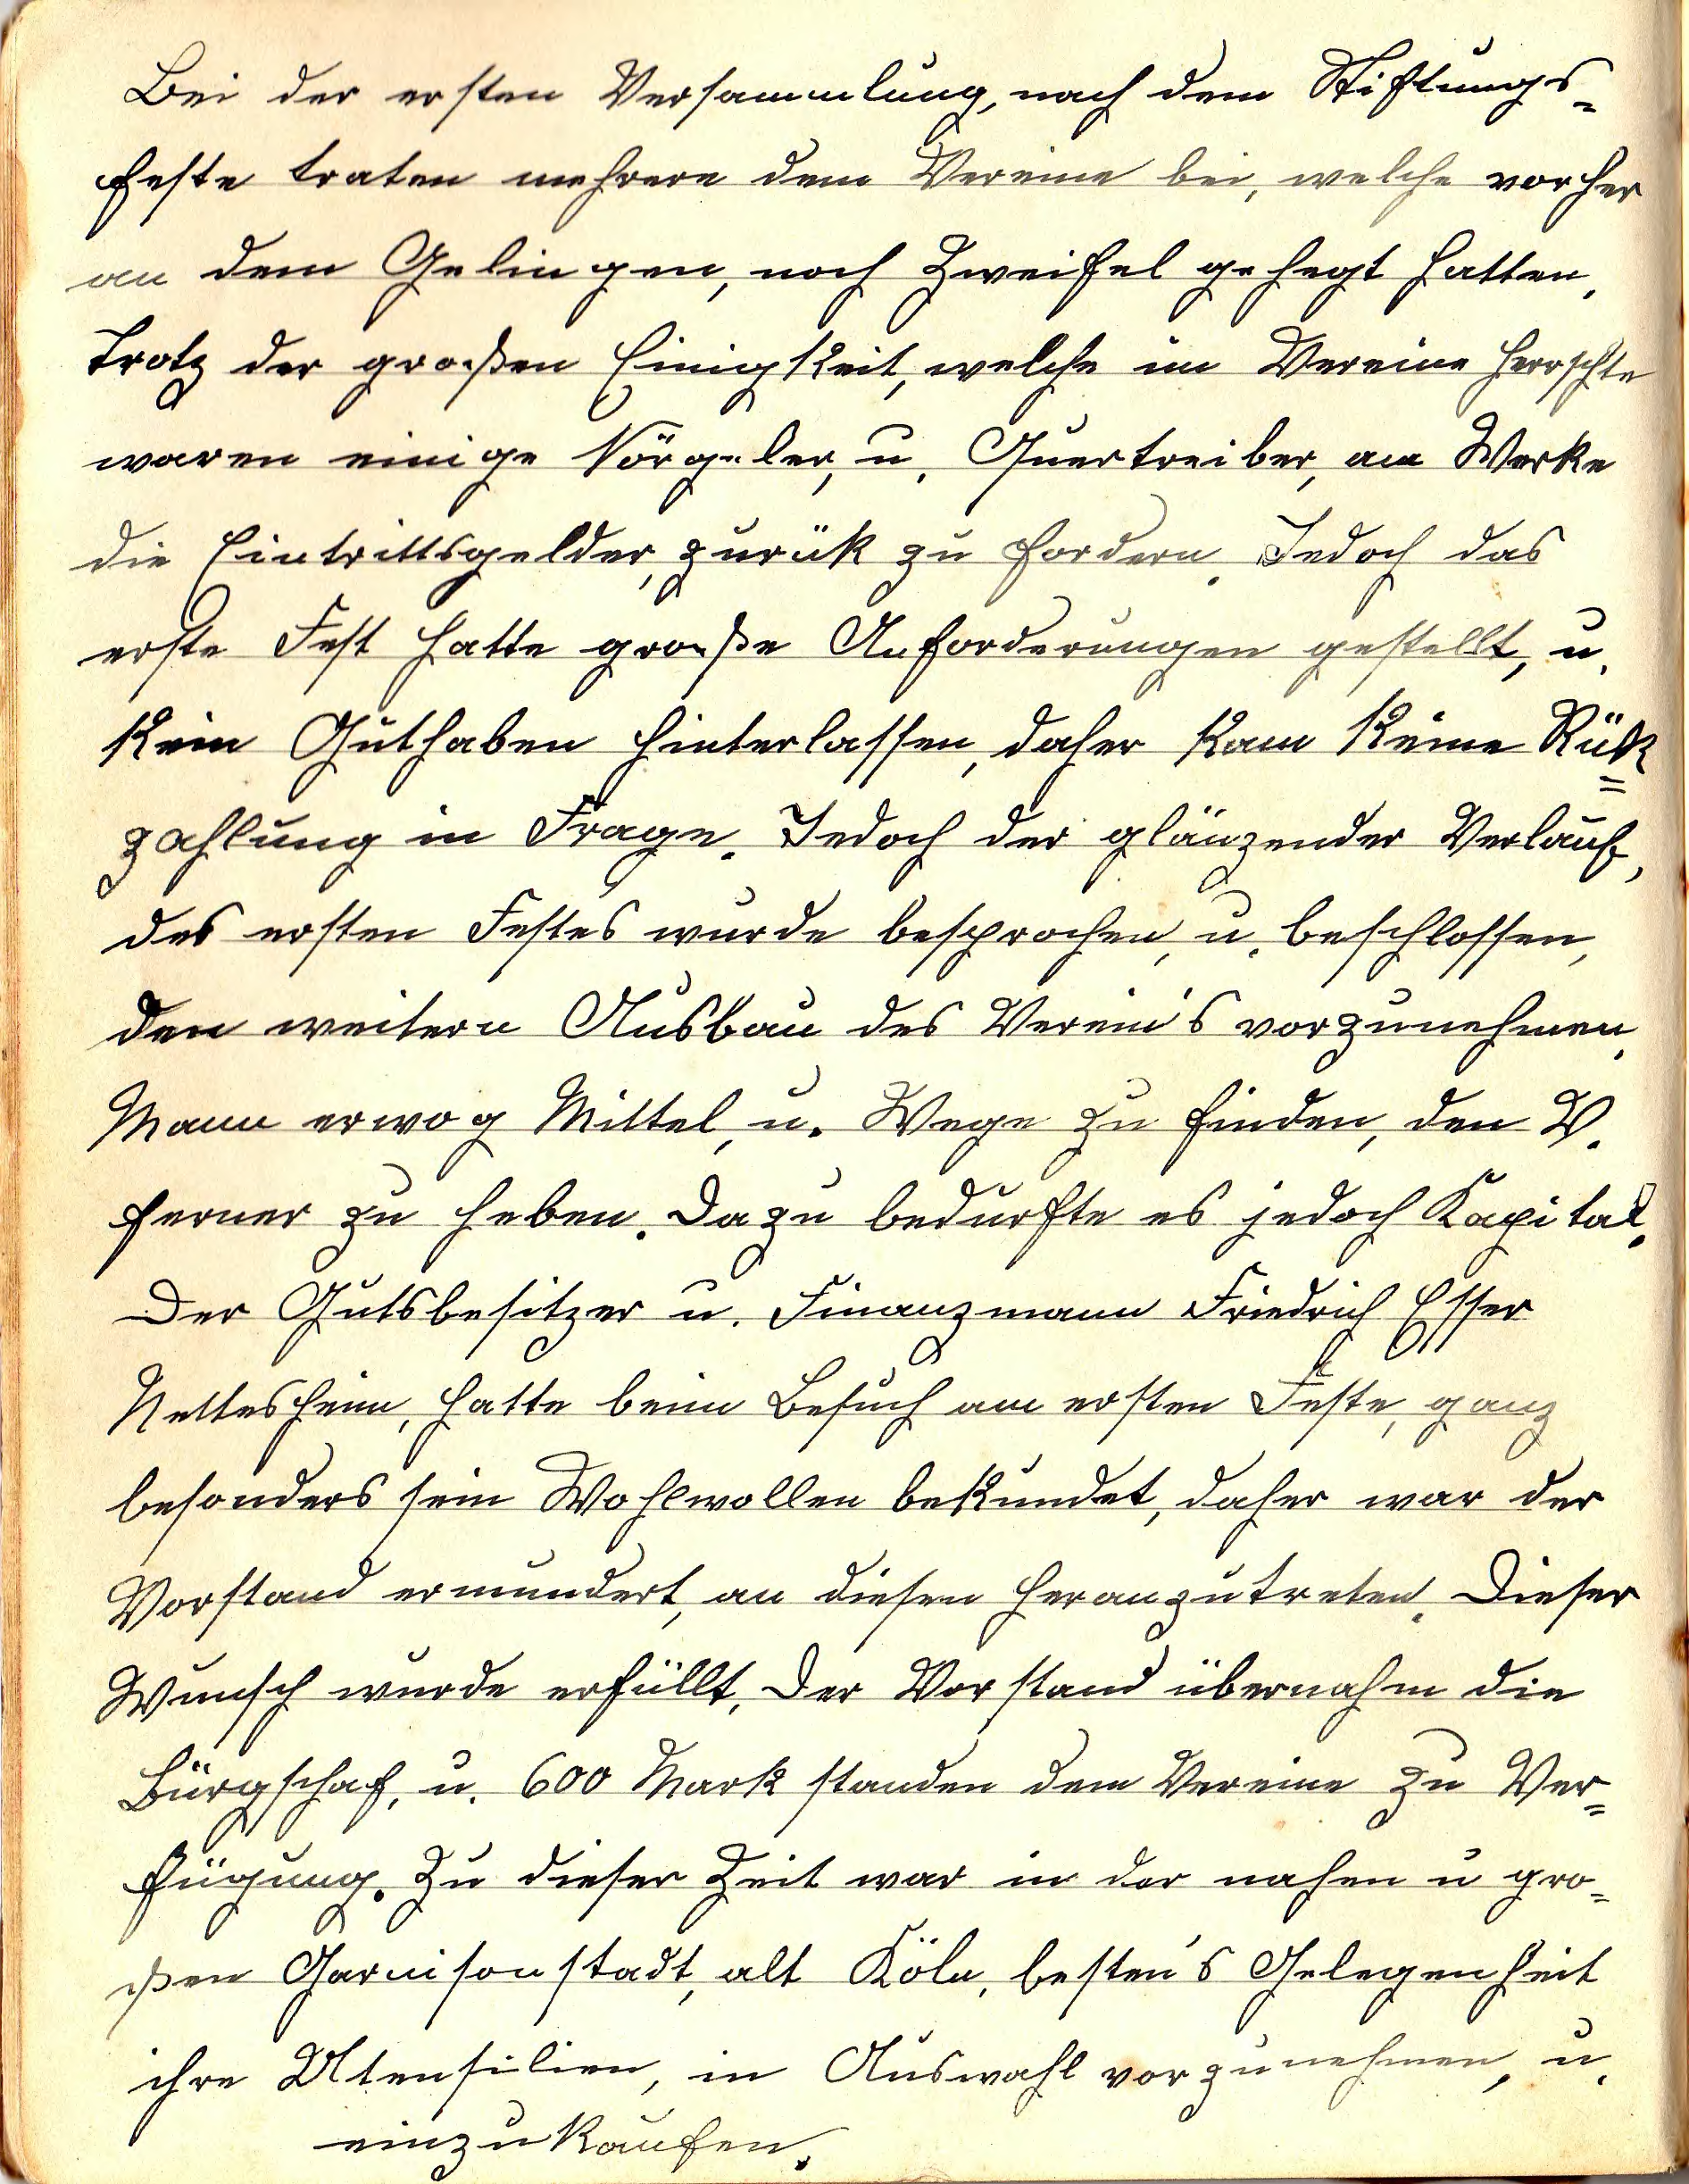 Bei der ersten Versammlung, nach dem Stiftungs=
feste traten mehrere dem Vereine bei, welche vorher
an dem Gelingen, noch Zweifel gehegt hatten,
Trotz der großen Einigkeit, welche im Vereine herrschte
waren einige Nörgeler, u. Quertreiber, am Werke
die Eintrittsgelder, zurük zu fordern. Jedoch das
erste Fest hatte große Anforderungen gestellt, u.
kein Guthaben hinterlassen, daher kam keine Rük=
zahlung in Frage. Jedoch der glänzender Verlauf,
des ersten Festes wurde besprochen, u. beschlossen,
den weitern Ausbau des Verein's vorzunehmen.
Mann erwog Mittel, u. Wege zu finden, den V.
ferner zu heben. Dazu bedurfte es jedoch Kapital.
Der Gutsbesitzer u. Finanzmann Friedrich Esser
Nettesheim, hatte beim Besuch am ersten Feste, ganz
besonders sein Wohlwollen bekundet, daher war der
Vorstand ermundert, an diesen heranzutreten. Dieser
Wunsch wurde erfüllt. Der Vorstand übernahm die
Bürgschaf, u. 600 Mark standen dem Vereine zu Ver=
fügung. Zu dieser Zeit war in der nahen u gro=
ßen Garnisonstadt, alt Köln, besten's Gelegenheit
ihre Utensilien, in Auswahl vorzunehmen, u.
einzukaufen.